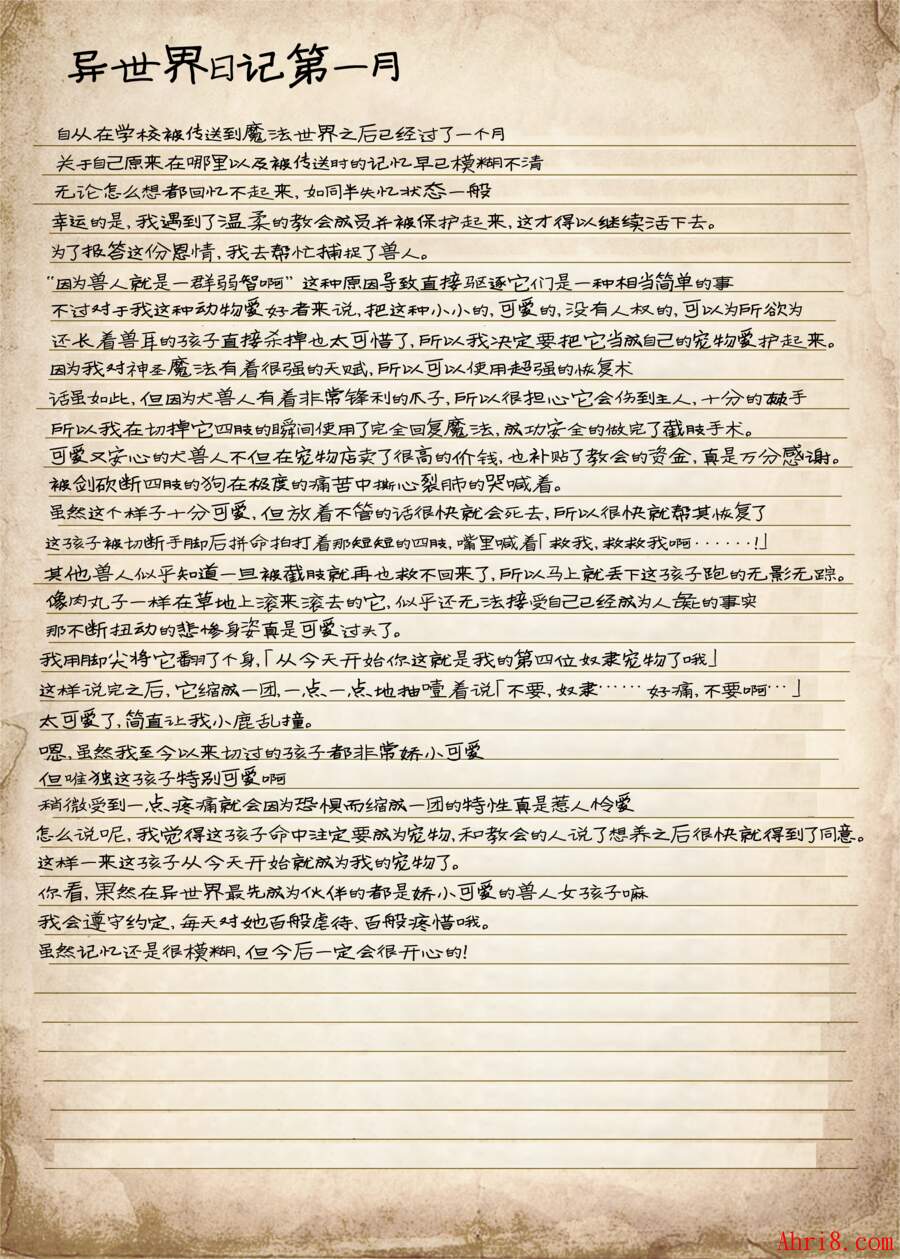 异世界日记第一月
自从在学校被传送到魔法世界之后已经过了一个月
关于自己原来在哪里以及被传送时的记忆早已模糊不清
无论怎么想都回忆不起来,如同半失忆状态一般
幸运的是,我遇到了温柔的教会成员并被保护起来,这才得以继续活下去。
为了报答这份恩情,我去帮忙捕捉了兽人。
“因为兽人就是一群弱智啊”这种原因导致直接驱逐它们是一种相当简单的事
不过对于我这种动物爱好者来说,把这种小小的,可爱的,没有人权的,可以为所欲为
还长着兽耳的孩子直接杀掉也太可惜了,所以我决定要把它当成自己的宠物爱护起来。
因为我对神圣魔法有着很强的天赋,所以可以使用超强的恢复术
话虽如此,但因为犬兽人有着非常锋利的爪子,所以很担心它会伤到主人,十分的棘手
所以我在切掉它四肢的瞬间使用了完全回复魔法,成功安全的做完了截肢手术。
可爱又安心的犬兽人不但在宠物店卖了很高的价钱,也补贴了教会的资金,真是万分感谢。
被剑砍断四肢的狗在极度的痛苦中撕心裂肺的哭喊着。
虽然这个样子十分可爱,但放着不管的话很快就会死去,所以很快就帮其恢复了
这孩子被切断手脚后拼命拍打着那短短的四肢,嘴里喊着「救我,救救我啊······!」
其他兽人似乎知道一旦被截肢就再也救不回来了,所以马上就丢下这孩子跑的无影无踪。
像肉丸子一样在草地上滚来滚去的它,似乎还无法接受自己已经成为人彘的事实
那不断扭动的悲惨身姿真是可爱过头了。
我用脚尖将它翻了个身,「从今天开始你这就是我的第四位奴隶宠物了哦」
这样说完之后,它缩成一团,一点一点地抽噎着说「不要,奴隶······好痛,不要啊···」
太可爱了,简直让我小鹿乱撞。
嗯,虽然我至今以来切过的孩子都非常娇小可爱
但唯独这孩子特别可爱啊
稍微受到一点疼痛就会因为恐惧而缩成一团的特性真是惹人怜爱
怎么说呢,我觉得这孩子命中注定要成为宠物,和教会的人说了想养之后很快就得到了同意。
这样一来这孩子从今天开始就成为我的宠物了。
你看,果然在异世界最先成为伙伴的都是娇小可爱的兽人女孩子嘛
我会遵守约定,每天对她百般虐待、百般疼惜哦。
虽然记忆还是很模糊,但今后一定会很开心的!
Ahri8.com